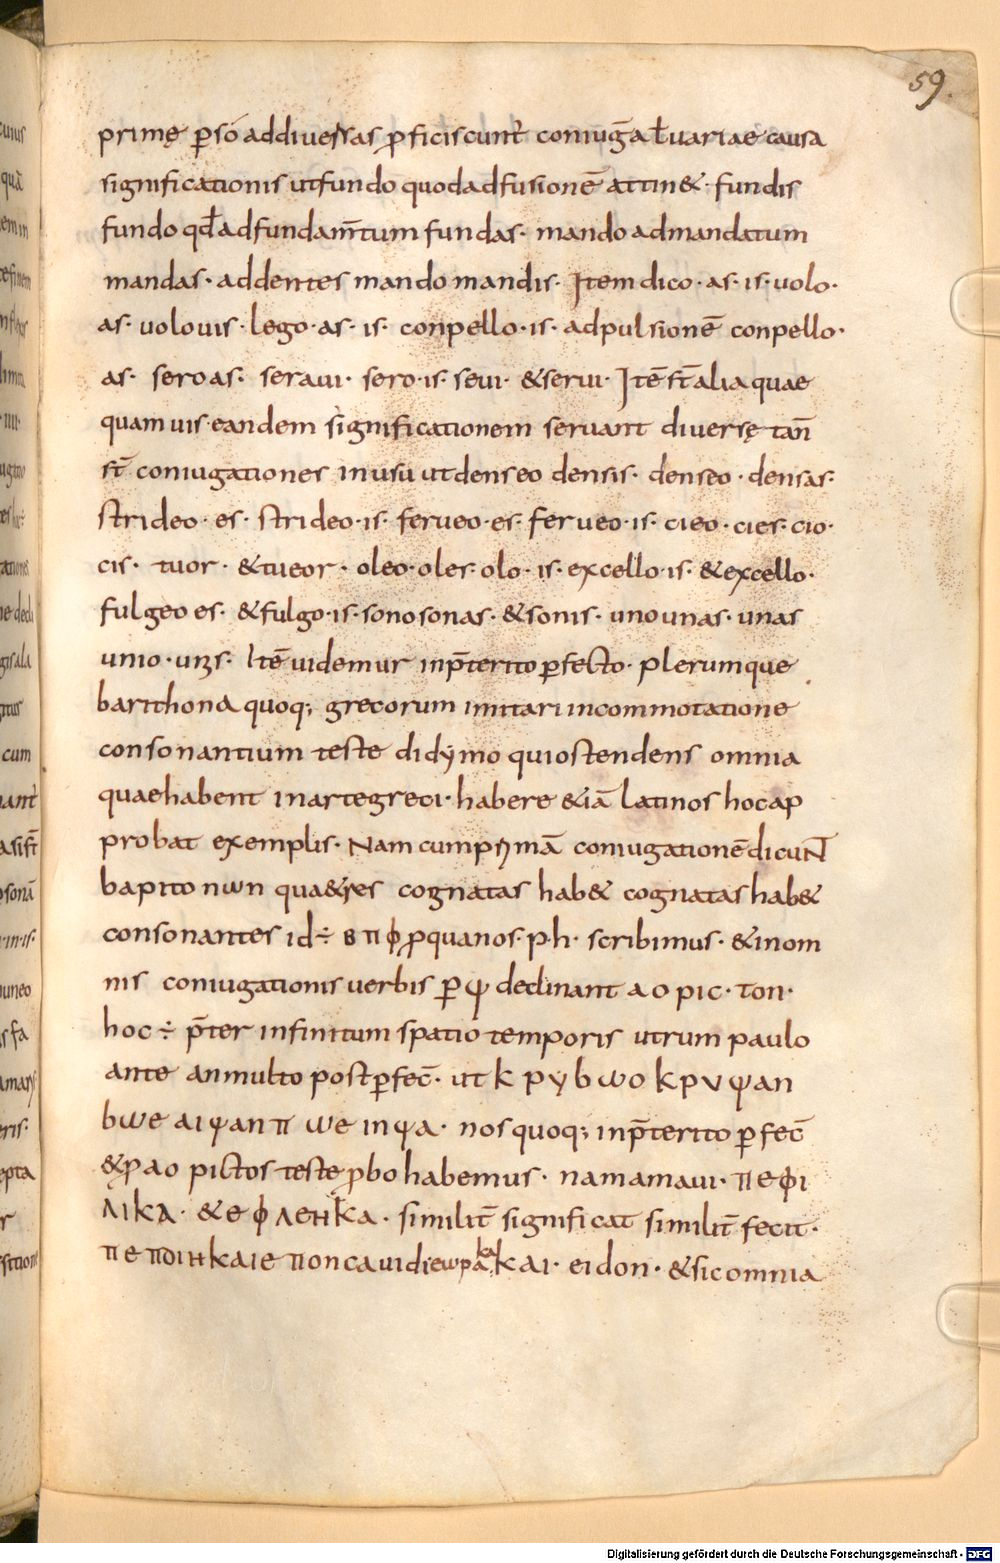 59.
primę p̄só addiuersas ꝓficiscunt̄ coniug̅a ł uariae causa
significationis ut fundo quod ad fusionē attin& · fundis
fundo qd̄ ad fundam̄tum fundas · mando ad mandatum
mandas · ad dentes mando mandis · Item dico · as · is · uolo ·
as · uolo uis · lego · as · is · conpello · is · ad pulsionē conpello ·
as · sero as · seraui · sero · is · seui · & serui · Itē st̄ alia quae
quam uis eandem significationem seruant diuersę tam̄
st̄ coniugationes in usu ut denseo densis · denseo · densas ·
strideo · es · strideo · is · ferueo · es · ferueo · is · cieo · cies · cio ·
cis · tuor · & tueor · oleo · oles · olo · is · excello · is · & excello ·
fulgeo es · & fulgo · is · sono sonas · & sonis · uno unas · unas
unio · unis · Itē uidemur in p̄terito p̄fecto · plerumque
barithona quoq; grecorum imitari in commotatione
consonantium teste didymo qui ostendens omnia
quae habent in arte greci · habere &iā latinos hoc ap
probat exemplis · Nam cum primā coniugationē dicunt
bapito nωn quae tres cognatas hab& cognatas hab&
consonantes id ÷ β π φ ꝓ qua nos · p · h · scribimus · & in om
nis coniugationis uerbis p̄ ψ declinant a o pic · ton ·
hoc ÷ p̄ter infinitum spatio temporis utrum paulo
ante an multo post p̄fec̄ · ut k p y b ω o k p v ψ an
b ω e ai ψ an π ω e in ψ a · nos quoq; in p̄terito p̄fec̄
& ꝓ a o pictos teste ꝓbo habemus · nam amaui · π e φ ι
λ ι k a · & e φ λ e н k a · similit̄ significat similit̄ fecit ·
π e π οι н k a ι e π on ca uidi e ω p a ka k ai · eidon · & sic omnia
Digitalisierung gefördert durch die Deutsche Forschungsgemeinschaft - DFG